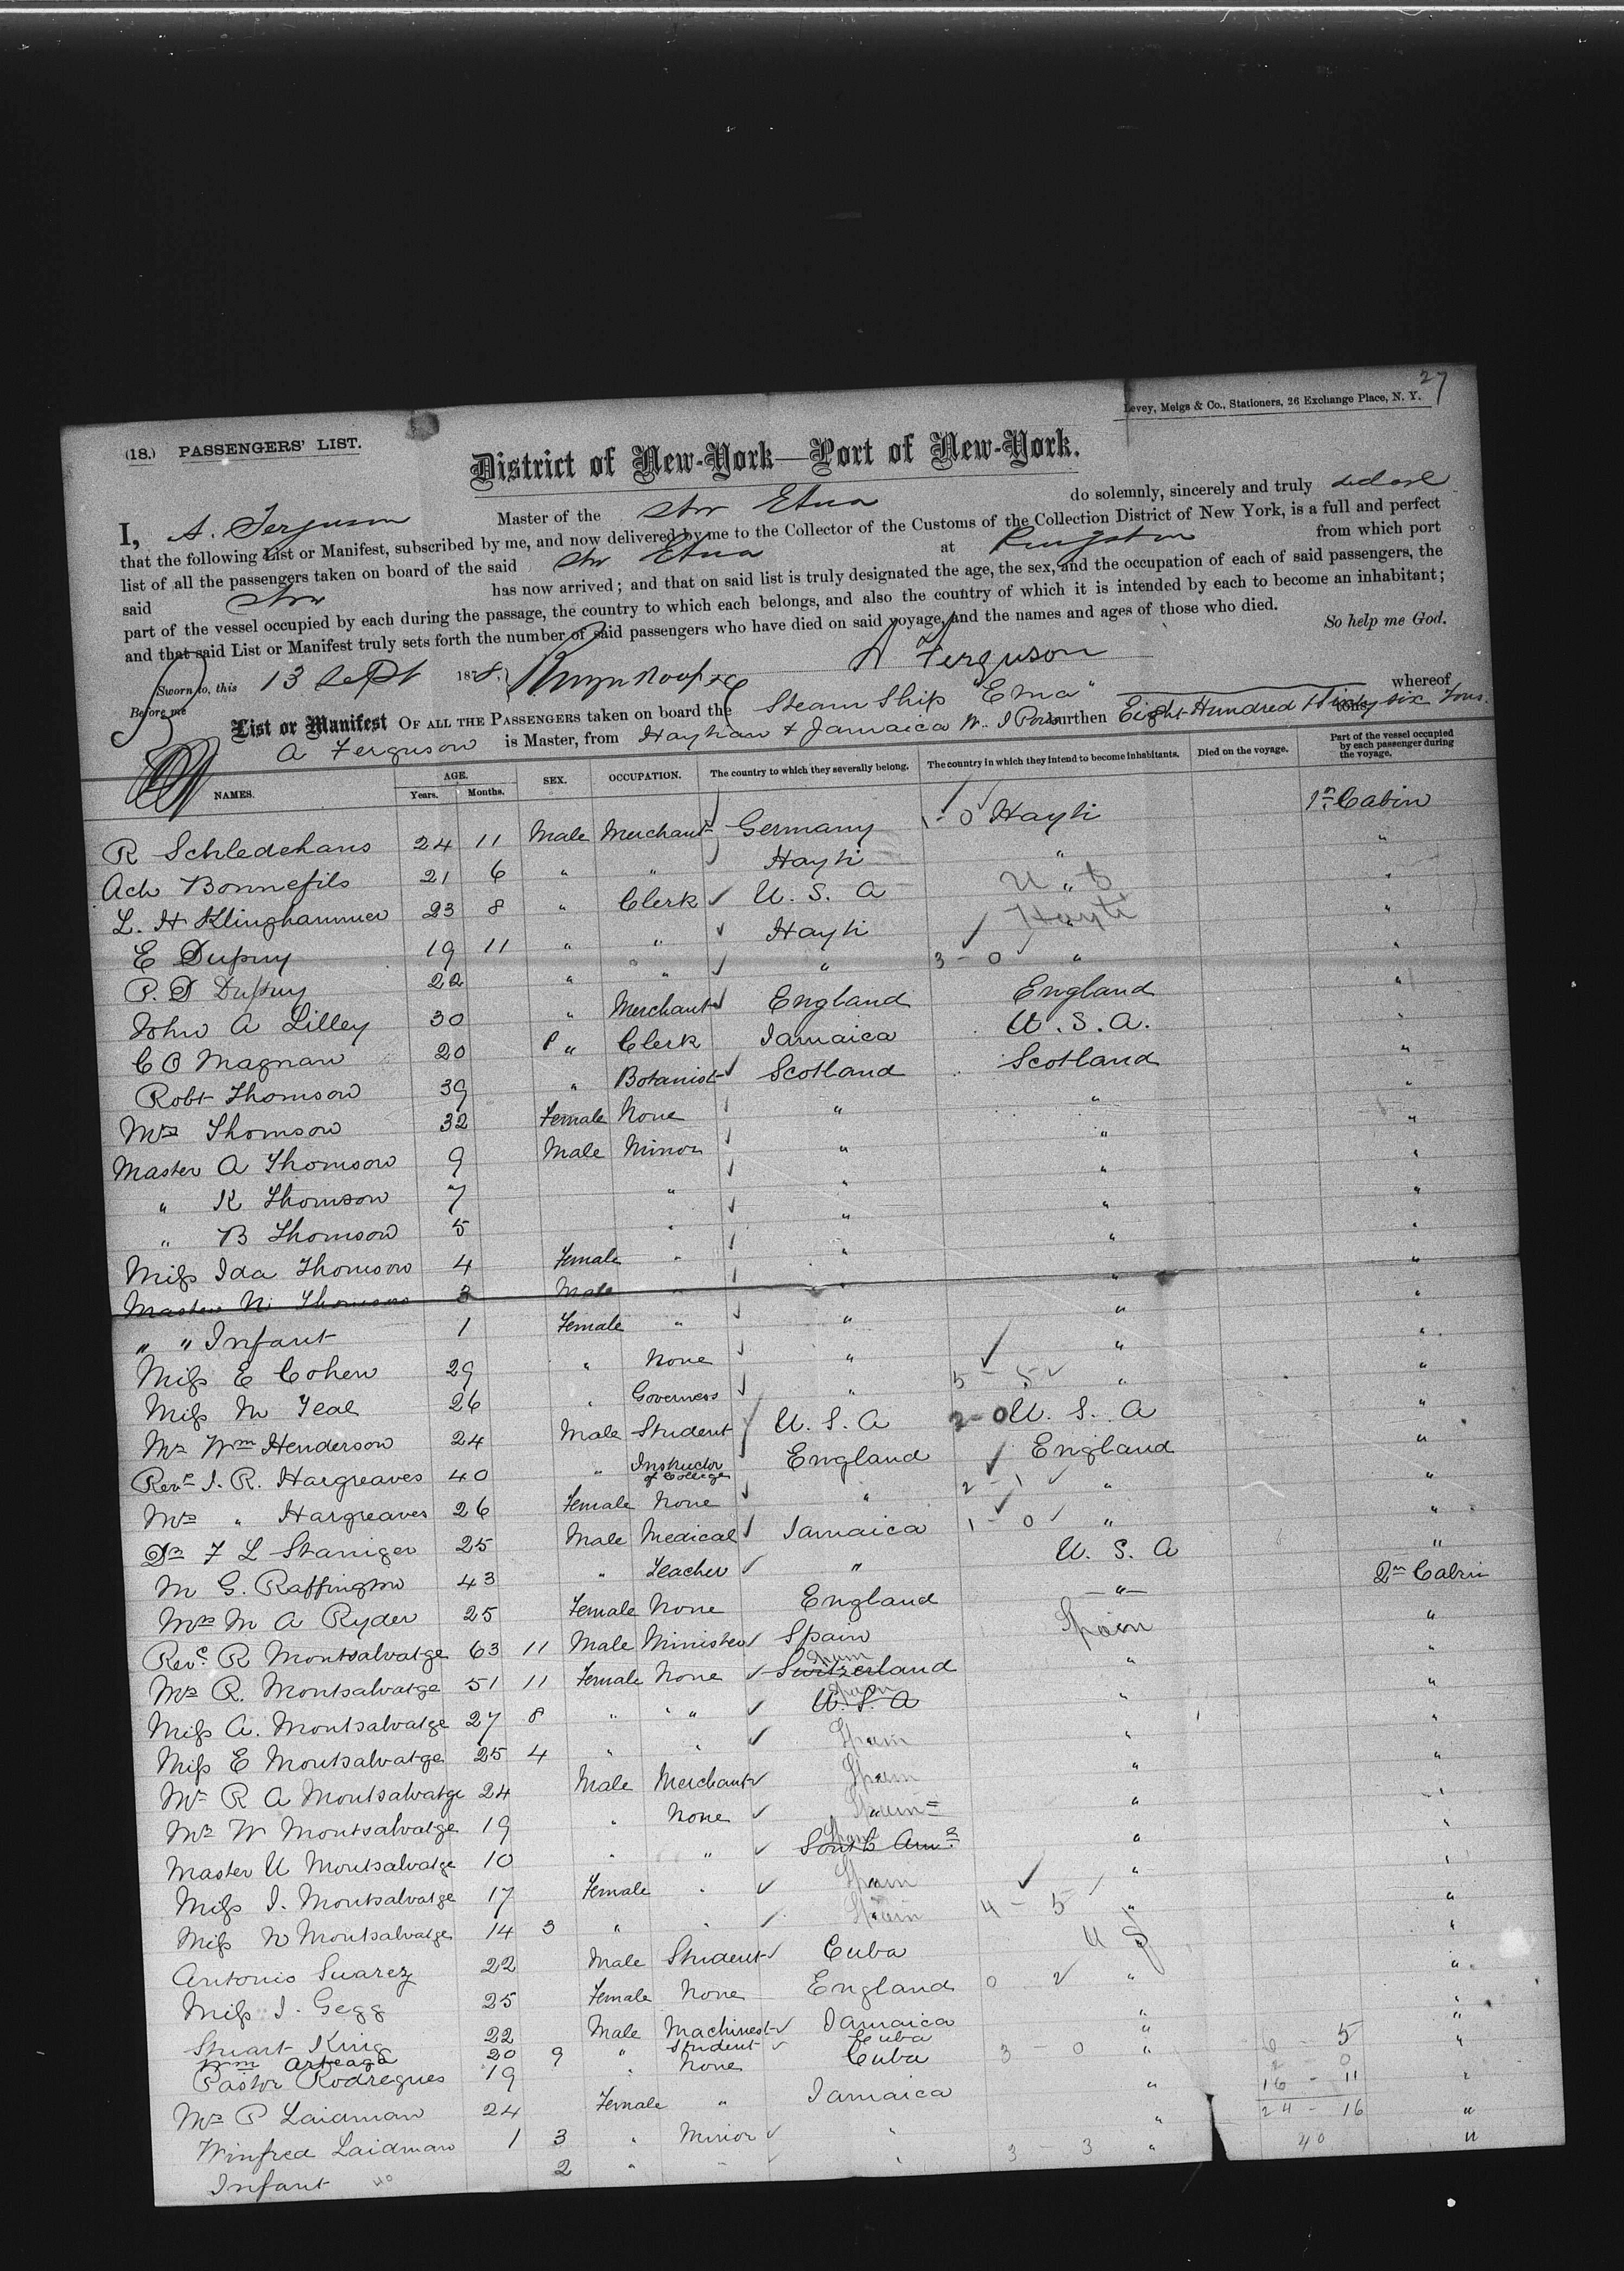 27
Levey, Meigs & Co., Stationers, 26 Exchange Place, N. Y.
(18.) PASSENGERS' LIST.
District of New-York—Port of New-York.
I, A. Ferguson Master of the Str Etna do solemnly, sincerely and truly
that the following List or Manifest, subscribed by me, and now delivered by me to the Collector of the Customs of the Collection District of New York, is a full and perfect
list of all the passengers taken on board of the said Str Etna at Kingston from which port
said Str has now arrived; and that on said list is truly designated the age, the sex, and the occupation of each of said passengers, the
part of the vessel occupied by each during the passage, the country to which each belongs, and also the country of which it is intended by each to become an inhabitant;
and that said List or Manifest truly sets forth the number of said passengers who have died on said voyage, and the names and ages of those who died.
So help me God.
Sworn to, this 13 Sept 1878. A Ferguson
Before me
List or Manifest OF ALL THE PASSENGERS taken on board the Steam Ship "Etna" whereof
A Ferguson is Master, from Haytian & Jamaica W. I Ports burthen Eight Hundred six Tons.
NAMES. AGE. Years. Months. SEX. OCCUPATION. The country to which they severally belong. The country in which they intend to become inhabitants. Died on the voyage. Part of the vessel occupied by each passenger during the voyage.
R Schledehaus 24 11 Male Merchant Germany 1 - 0 Hayti 1st Cabin
Ach Bonnefils 21 6 " " Hayti " "
L. H Klinghammer 23 8 " Clerk U. S. A U " S "
E Dupuy 19 11 " " Hayti Hayti "
P. D Dupuy 22 " " " 3 - 0 " "
John A Lilley 30 " Merchant England England "
C O Magnan 20 " Clerk Jamaica U. S. A. "
Robt Thomson 39 " Botanist Scotland Scotland "
Mrs Thomson 32 Female None " " "
Master A Thomson 9 Male Minor " " "
" K Thomson 7 " " " "
" B Thomson 5 " " " "
Miss Ida Thomson 4 Female " " " "
Master N Thomson 3 Male " " " "
" " Infant 1 Female " " " "
Miss E Cohen 29 " None " " "
Miss M Teal 26 " Governess " 5 - 5 " "
Mr Wm Henderson 24 Male Student U. S. A 2 - 0 U. S. A "
Revd J. R. Hargreaves 40 " Instructor of College England England "
Mrs " Hargreaves 26 Female None " 2 - 1 " "
Dr F L Staniger 25 Male Medical Jamaica 1 - 0 " "
M G. Raffington 43 " Teacher " U. S. A "
Mrs M A Ryder 25 Female None England " 2nd Cabin
Revd R Montsalvatge 63 11 Male Minister Spain Spain "
Mrs R. Montsalvatge 51 11 Female None Switzerland Spain " "
Miss A. Montsalvatge 27 8 " " U. S. A Spain " "
Miss E Montsalvatge 25 4 " " Spain " "
Mr R A Montsalvatge 24 Male Merchant Spain " "
Mr W Montsalvatge 19 " None Spain " "
Master U Montsalvatge 10 " " South Ama Spain " "
Miss I. Montsalvatge 17 Female " Spain " "
Miss N Montsalvatge 14 3 " " Spain 4 - 5 " "
Antonio Suarez 22 Male Student Cuba U S "
Miss I. Gegg 25 Female None England 0 2 " "
Stuart King 22 Male Machinest Jamaica " "
Wm Arteaga 20 9 " Student Cuba "
Pastor Rodregues 19 " None Cuba 3 - 0 " "
Mrs P Laidman 24 Female " Jamaica " "
Winfred Laidman 1 3 " Minor " " "
Infant 40 2 " " " 3 3 " "
6 5
2 - 0
16 - 11
24 - 16
40